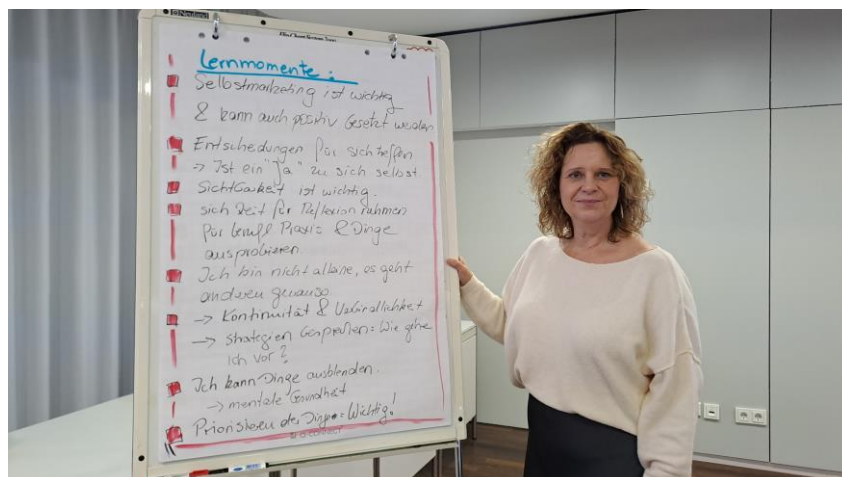 Neuland
Lernmomente:
Selbstmarketing ist wichtig
& kann auch positiv Gesetzt werden
Entscheidungen für sich treffen
-> Ist ein "Ja" zu sich selbst
Sichtbarkeit ist wichtig.
sich Zeit für Reflexion nehmen
für berufl Praxis & Dinge
ausprobieren.
Ich bin nicht alleine, es geht
anderen genauso.
-> Kontinuität & Verbindlichkeit
-> Strategien Gesprochen: Wie gehe
Ich vor?
Ich kann Dinge ausblenden.
-> mentale Gesundheit
Priorisieren der Dinge = Wichtig!